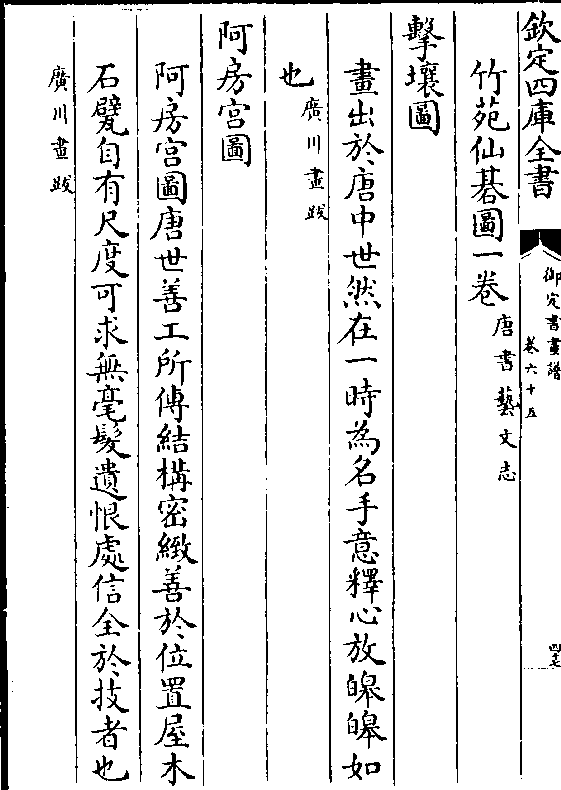 欽定四庫全書
御定書畫譜
卷六十五
竹苑仙碁圖一卷唐書藝文志
擊壤圖
畫出於唐中世然在一時為名手意釋心放皞皞如
也廣川畫跋
阿房宫圖
阿房宫圖唐世善工所傳結構密緻善於位置屋木
石甃自有尺度可求無毫髮遺恨處信全於技者也
廣川畫跋